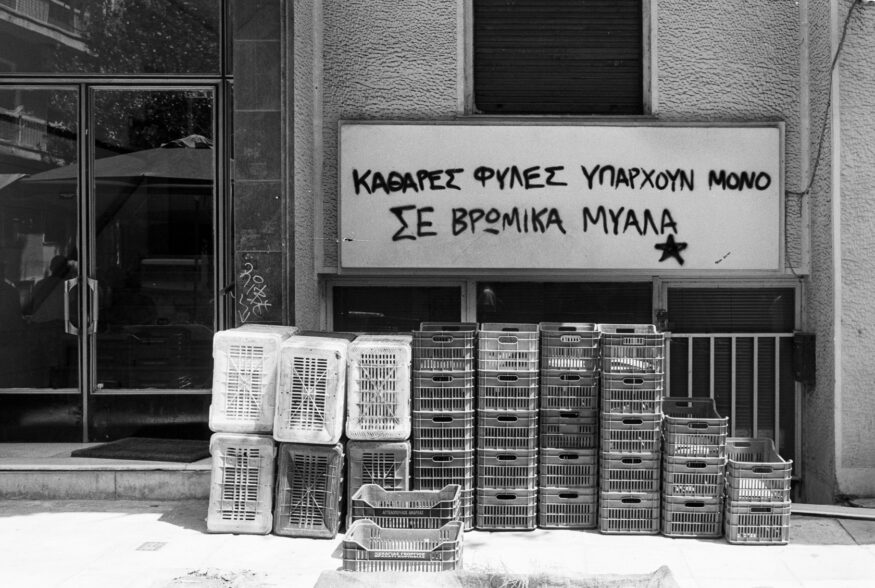 ΚΑΘΑΡΕΣ ΦΥΛΕΣ ΥΠΑΡΧΟΥΝ ΜΟΝΟ
ΣΕ ΒΡΩΜΙΚΑ ΜΥΑΛΑ